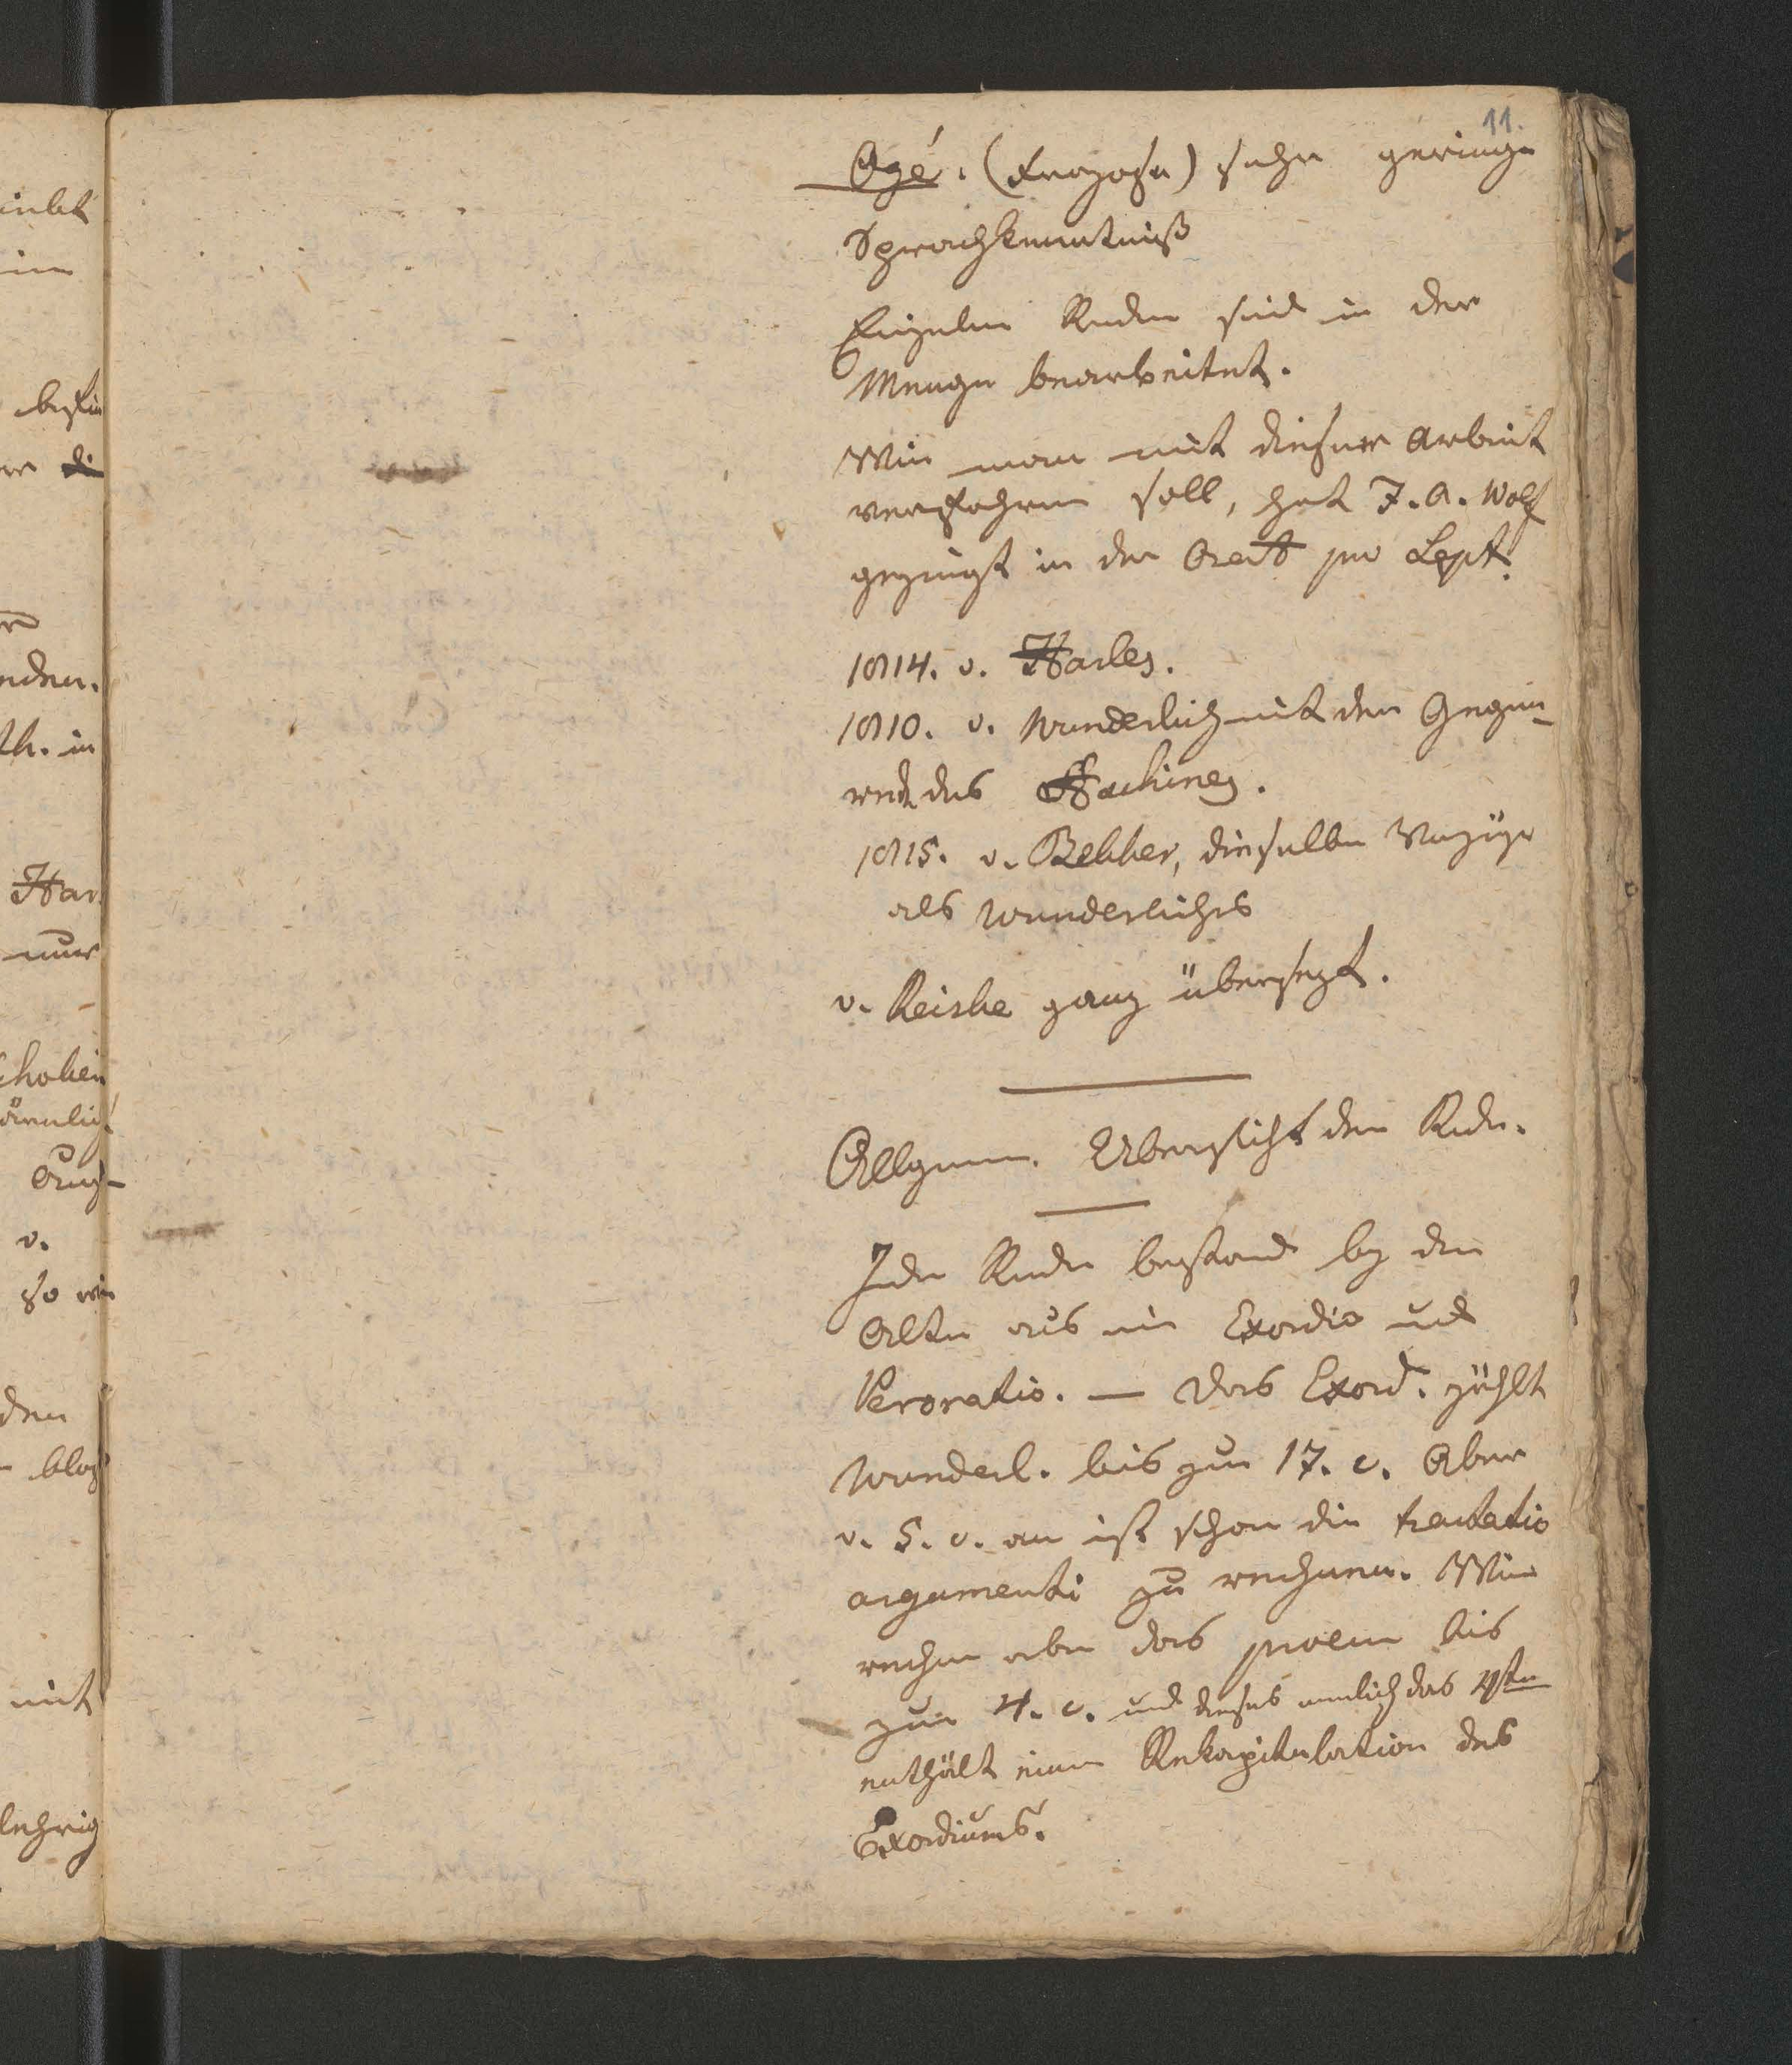 11.
Ogé. (Franzose) sehr geringe
Sprachkenntniß
Einzelne Reden sind in der
Menge bearbeitet.
Wie man mit dieser Arbeit
verfahren soll, hat F. A. Wolf
gezeigt in der Orat pro Lept.
1814. v. Harles.
1810. v. Wunderlich mit der Gegen-
rede des Aeschines.
1815. v. Bekker, dieselben Vorzüge
als Wunderliches
v. Reiske ganz übersezt.
Allgemn. Übersicht der Rede.
Jede Rede bestand bey den
Alten aus ein Exordio und
Peroratio. — Das Exord. zählt
Wunderl. bis zum 17. c. Aber
v. 5. c. an ist schon die tractatio
argumenti zu rechnen. Wir
rechnen aber das proem bis
zum 4. c. und dieses nemlich das 4te
enthält eine Rekapitulation des
Exordiums.